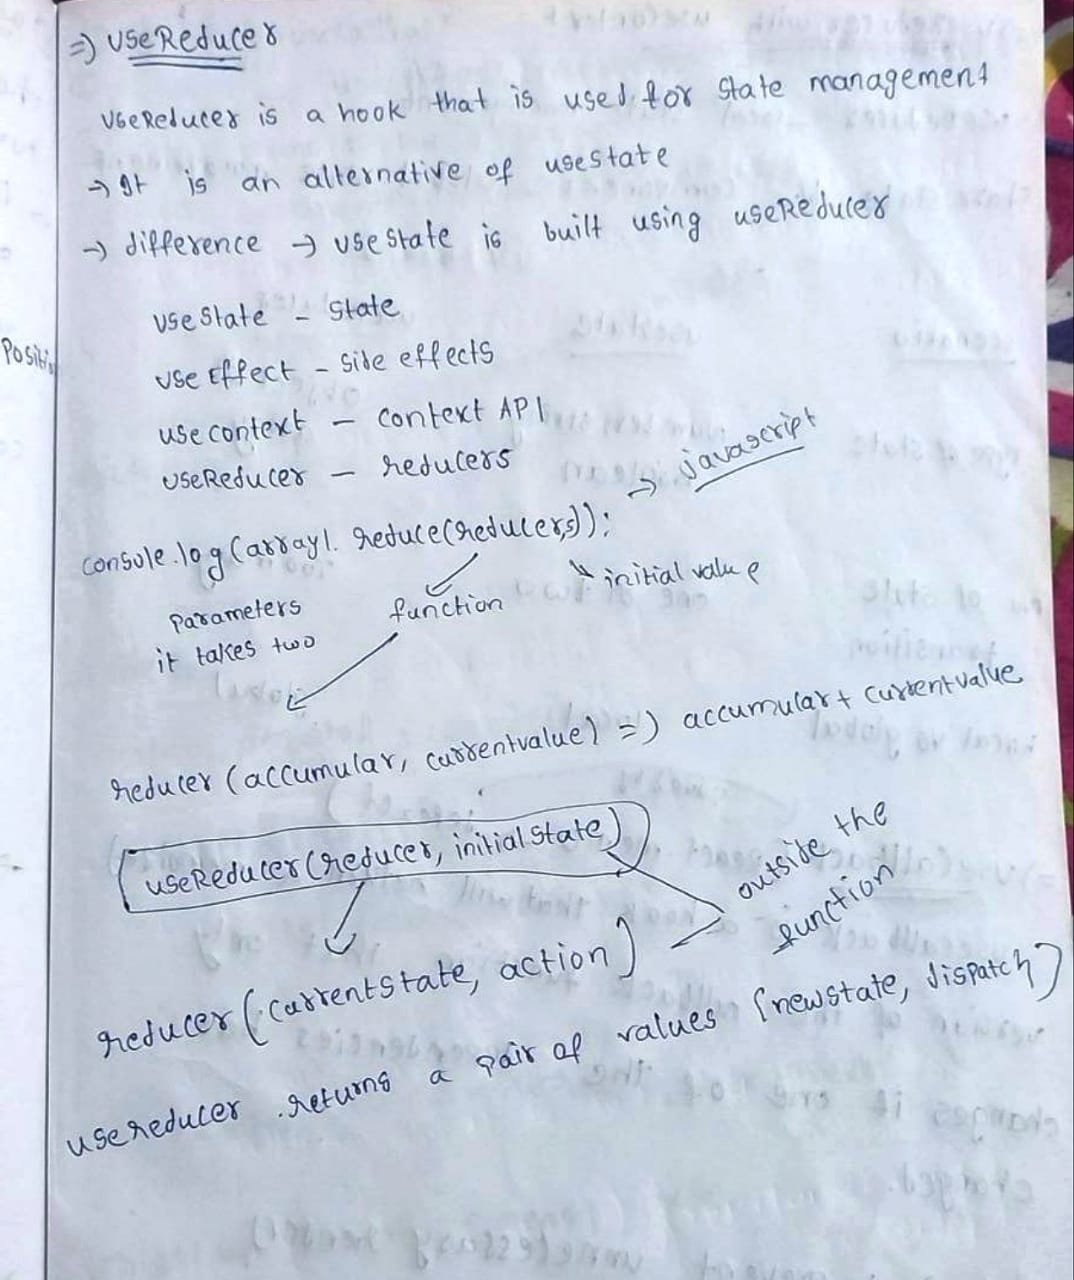 => useReducer
useReducer is a hook that is used for state management
→ It is an alternative of usestate
→ difference → useState is built using useReducer
useState - state
Positi
use Effect - side effects
use context - context API
useReducer - reducers
→ javascript
console.log(array1.reduce(reducer,5));
initial value
parameters
function
it takes two
reducer (accumular, currentvalue) => accumular + currentvalue
useReducer (reducer, initial state)
outside the
function
reducer (currentstate, action)
usereducer returns a pair of values (newstate, dispatch)